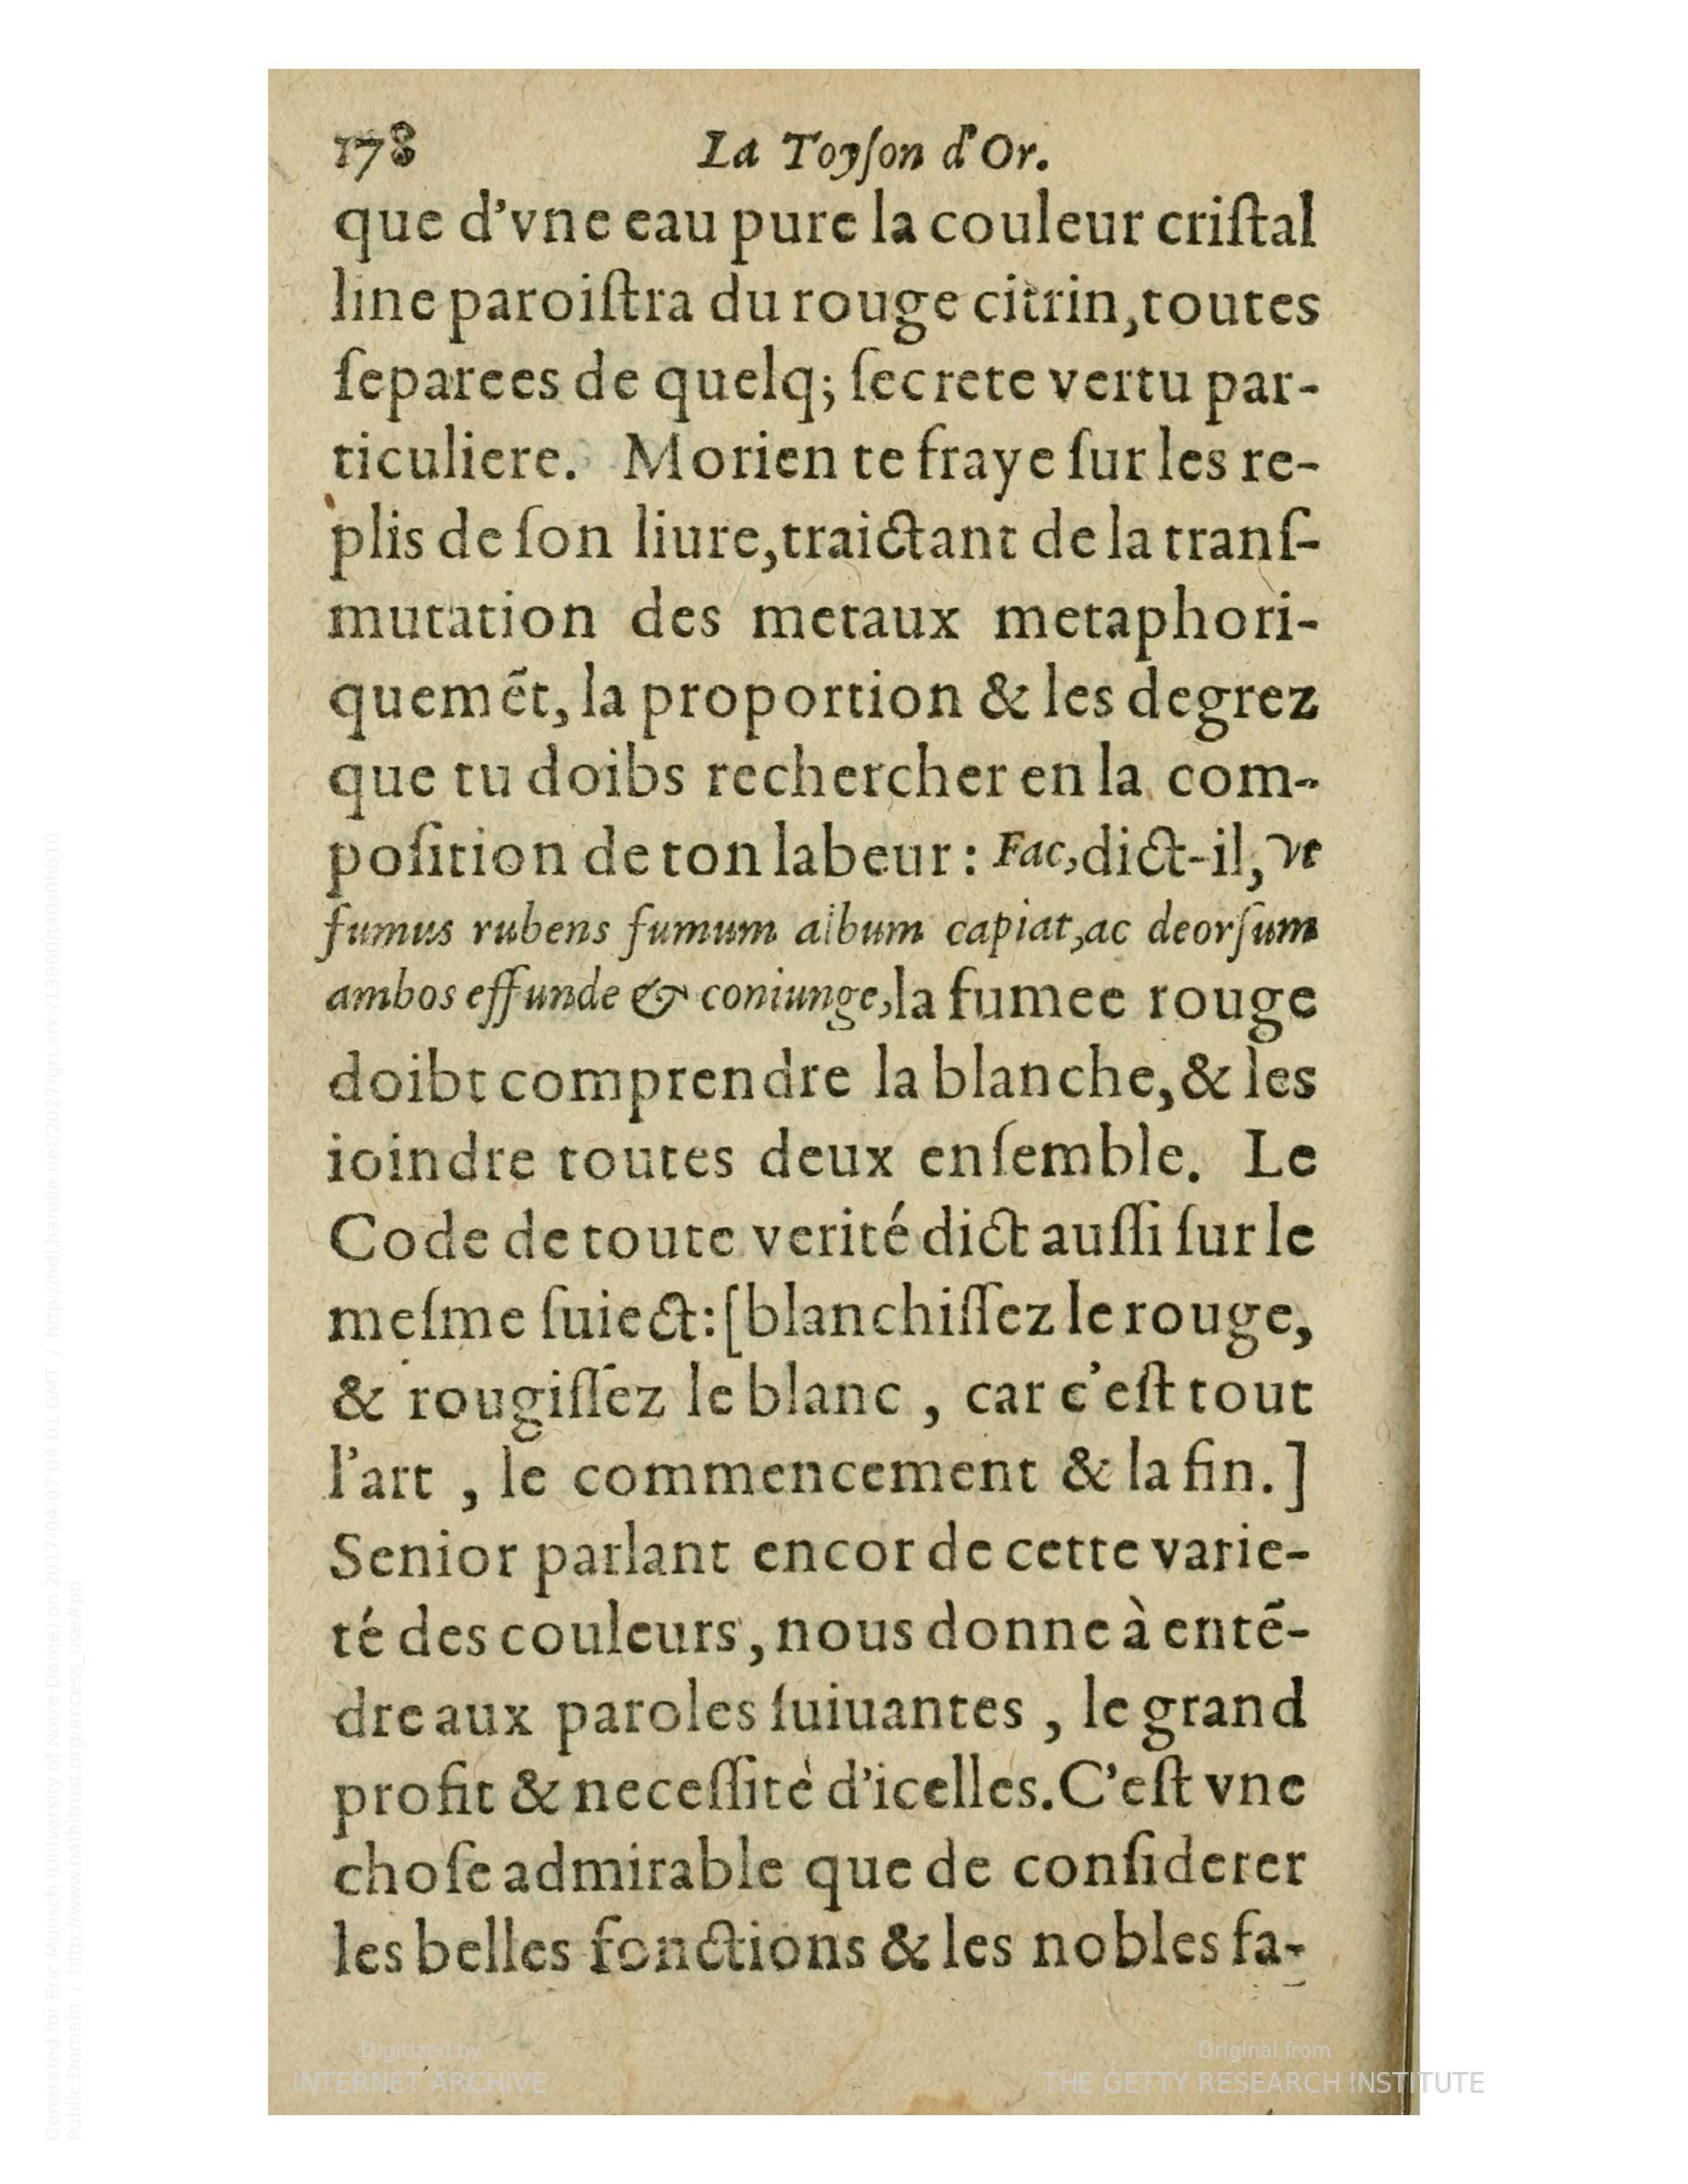 178 La Toyſon d'Or.
que d'vne eau pure la couleur criſtal
line paroiſtra du rouge citrin, toutes
ſeparees de quelq; ſecrete vertu par-
ticuliere. Morien te fraye ſur les re-
plis de ſon liure, traictant de la tranſ-
mutation des metaux metaphori-
quemẽt, la proportion & les degrez
que tu doibs rechercher en la com-
poſition de ton labeur : Fac, dict-il, vt
fumus rubens fumum album capiat, ac deorſum
ambos effunde & coniunge, la fumee rouge
doibt comprendre la blanche, & les
ioindre toutes deux enſemble. Le
Code de toute verité dict auſſi ſur le
meſme ſuiect: [blanchiſſez le rouge,
& rougiſſez le blanc , car c'eſt tout
l'art , le commencement & la fin. ]
Senior parlant encor de cette varie-
té des couleurs, nous donne à entẽ-
dre aux paroles ſuiuantes , le grand
profit & neceſſité d'icelles. C'eſt vne
choſe admirable que de conſiderer
les belles fonctions & les nobles fa-
Digitized by
INTERNET ARCHIVE
Original from
THE GETTY RESEARCH INSTITUTE
Generated for Eric Munsch (University of Notre Dame) on 2017-04-07 04:01 GMT / http://hdl.handle.net/2027/gri.ark:/13960/t40s0hb10
Public Domain / http://www.hathitrust.org/access_use#pd